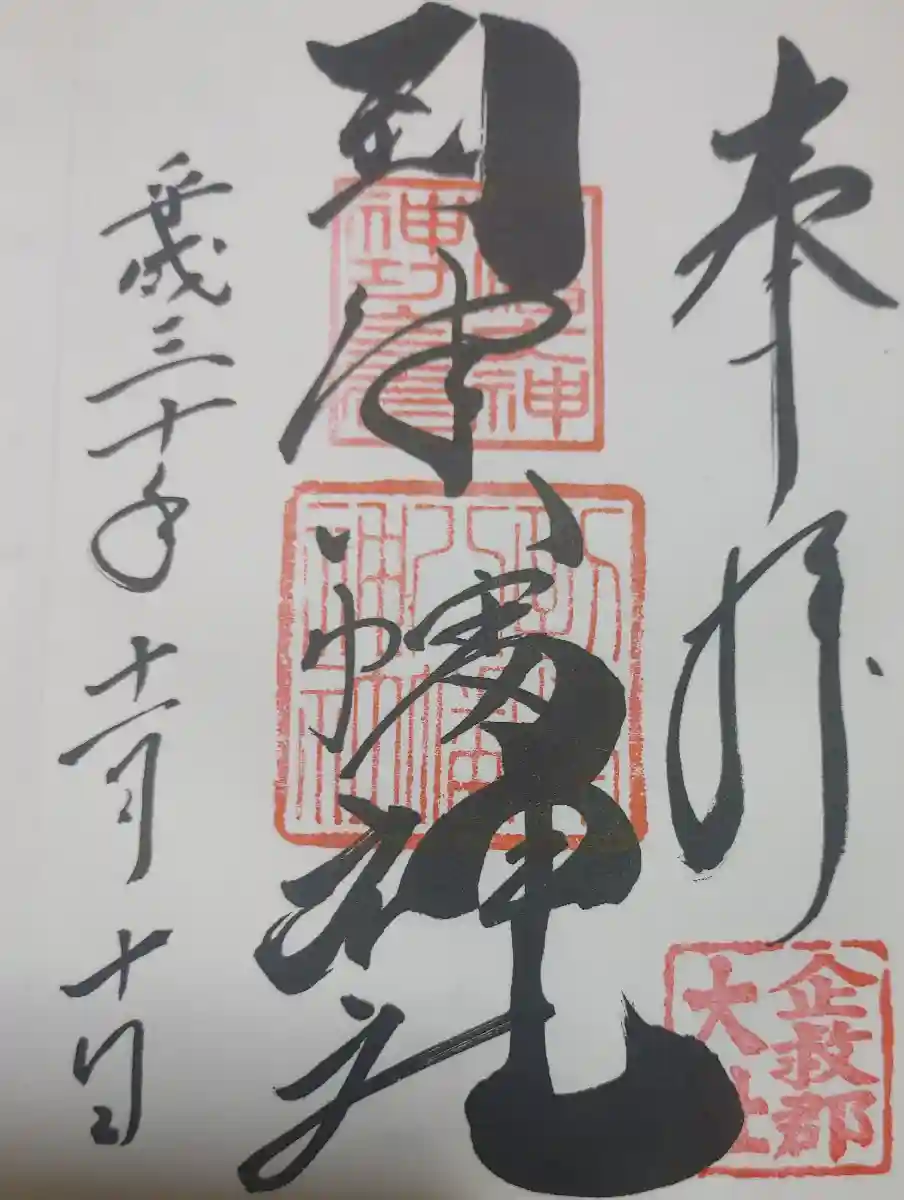 奉拝
企救郡
大社
到津八幡神社
神功皇后
平成三十年十一月十日